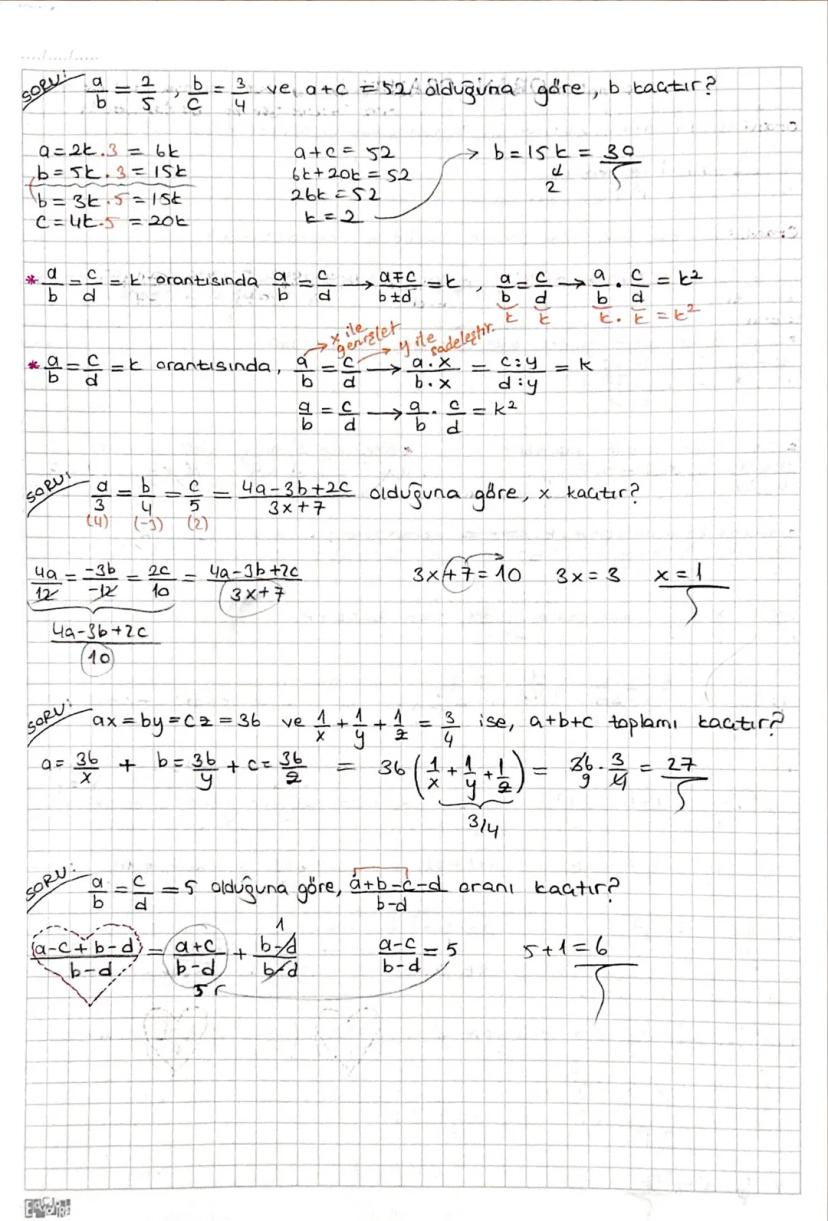 SORU: a/b = 2/5 , b/c = 3/4 ve a+c = 52 olduğuna göre, b kaçtır?
a = 2k.3 = 6k
b = 5k.3 = 15k
b = 3k.5 = 15k
c = 4k.5 = 20k
a+c = 52
6k+20k = 52
26k = 52
k = 2
→ b = 15k = 30
2
* a/b = c/d = k orantısında a/b = c/d → a∓c/b±d = k , a/b = c/d → a/b . c/d = k²
k k k . k = k²
x ile genişlet
y ile sadeleştir.
* a/b = c/d = k orantısında, a/b = c/d → a.x/b.x = c:y/d:y = k
a/b = c/d → a/b . c/d = k²
SORU: a/3 = b/4 = c/5 = 4a-3b+2c/3x+7 olduğuna göre, x kaçtır?
(4) (-3) (2)
4a/12 = -3b/-12 = 2c/10 = 4a-3b+2c/3x+7
4a-3b+2c/10
3x+7 = 10 3x = 3 x = 1
SORU: ax = by = cz = 36 ve 1/x + 1/y + 1/z = 3/4 ise, a+b+c toplamı kaçtır?
a = 36/x + b = 36/y + c = 36/z = 36 (1/x + 1/y + 1/z) = 36 . 3/4 = 27
9
3/4
SORU: a/b = c/d = 5 olduğuna göre, a+b-c-d/b-d oranı kaçtır?
(a-c+b-d)/b-d = a+c/b-d + b-d/b-d a-c/b-d = 5 5+1 = 6
1
5